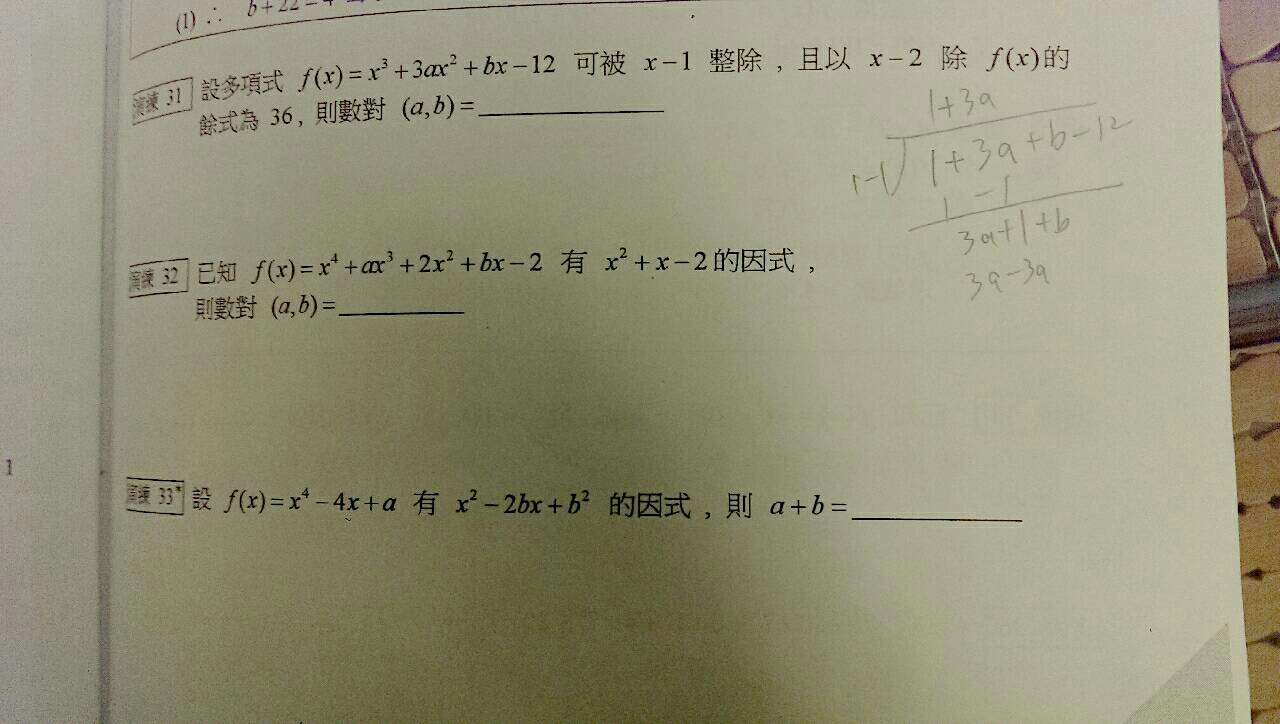 (1) ∴ b+22=4
演練 31 設多項式 f(x)=x³+3ax²+bx−12 可被 x−1 整除，且以 x−2 除 f(x)的
餘式為 36，則數對 (a,b)=
1+3a
1-1 1+3a+b-12
1 -1
3a+1+b
3a-3a
演練 32 已知 f(x)=x⁴+ax³+2x²+bx−2 有 x²+x−2的因式，
則數對 (a,b)=
演練 33* 設 f(x)=x⁴−4x+a 有 x²−2bx+b² 的因式，則 a+b=
1